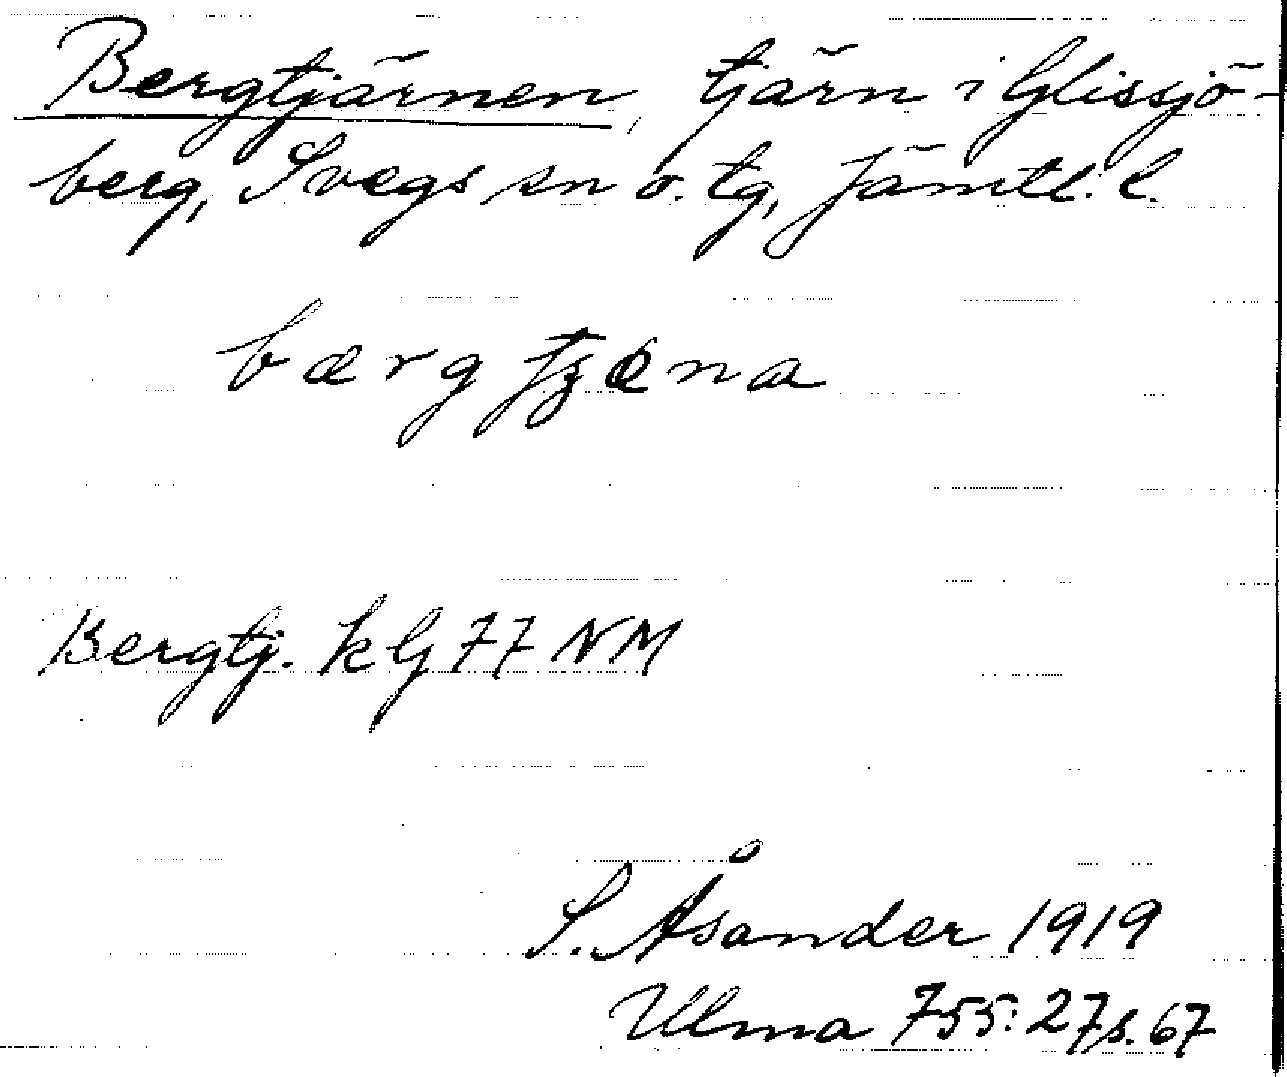 Bergtjärnen, tjärn i Glissjö-
berg, Svegs sn o. tg, Jämtl. l.
bærgtʒæna
Bergtj. k G 77 NM
S. Åsander 1919
Ulma 755:27 s. 67